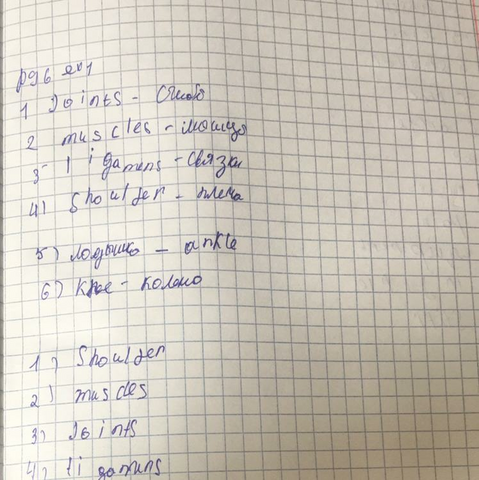 pg 6 ex 1
1 Joints -
2 muscles - мышцы
3- ligamens - связки
4) Shoulder - плеча
5) лодыжка - ankle
6) Knee - колено
1) Shoulder
2) muscles
3) Joints
4) ligamens